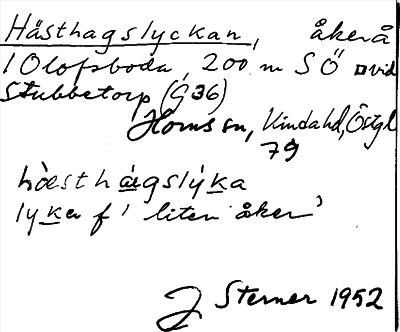 Hästhagslyckan, åkerå
i Olofsboda, 200 m SÖ □ vid
Stubbetorp (G36)
Horns sn, Kinda hd, Östgl
79
hòesthàgslyka
lyka f 'liten åker'
J Sterner 1952